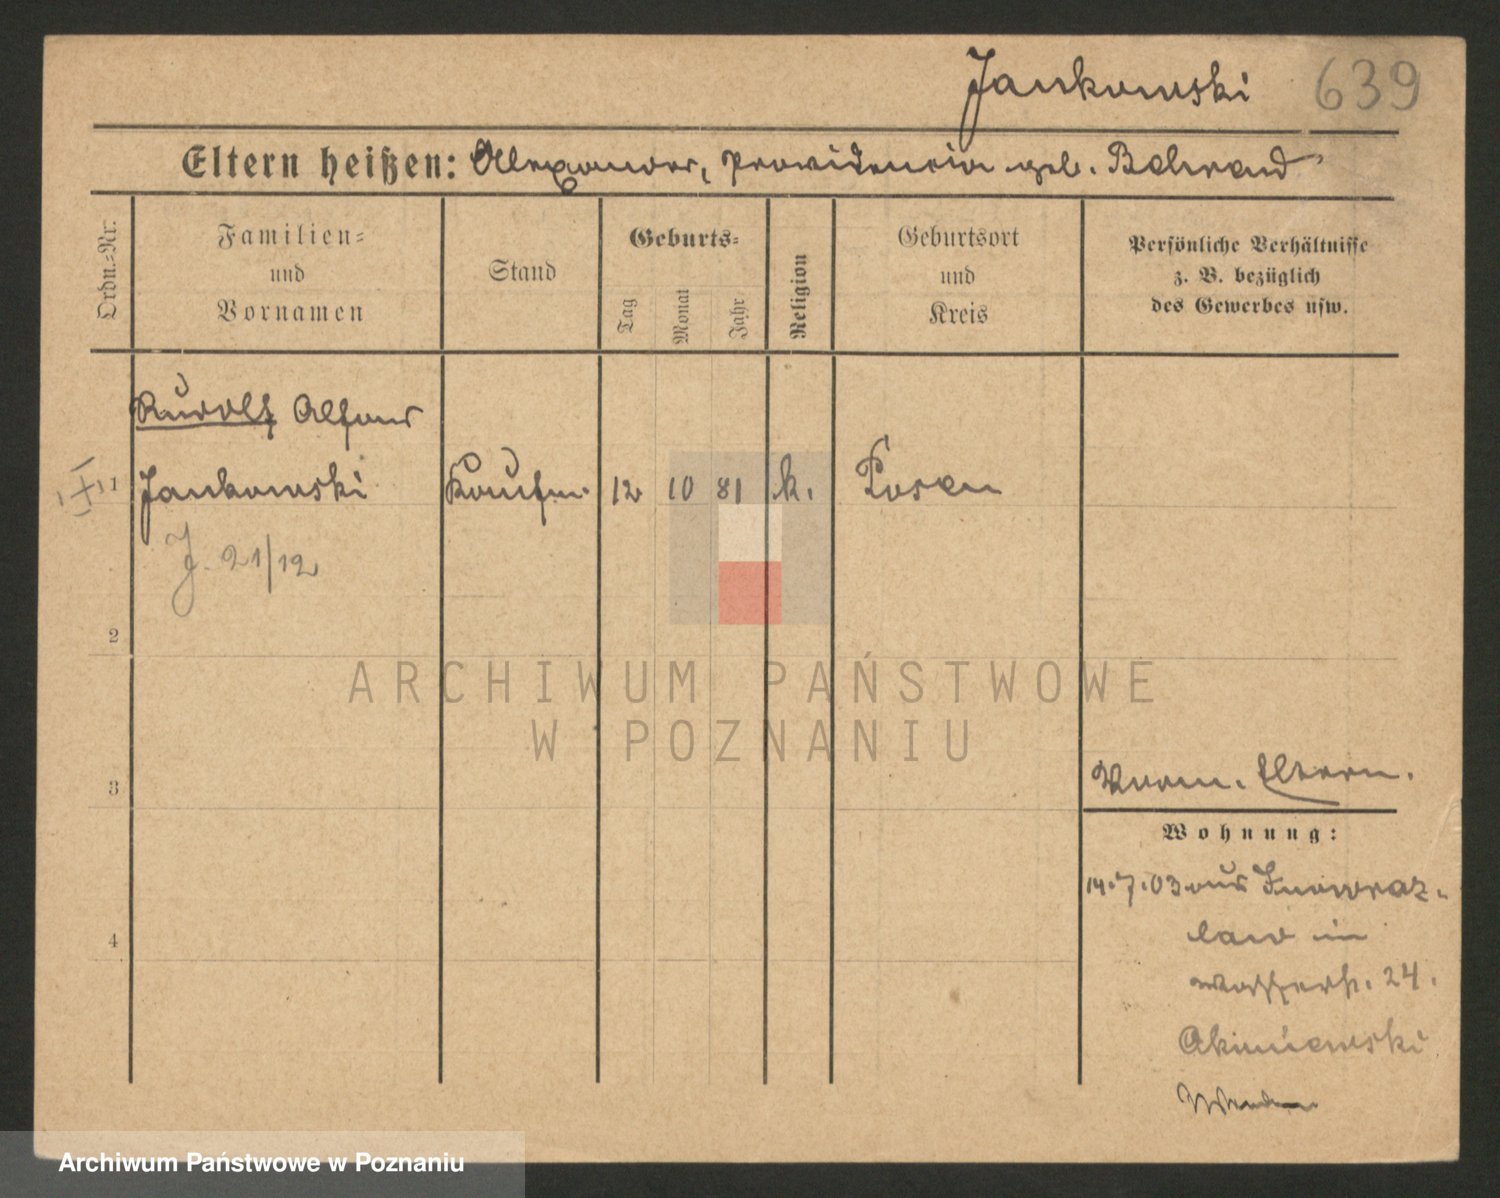 Jankowski 639
Eltern heißen: Alexander, Providencia geb. Behrend
Ordn.=Nr.
Familien=
und
Vornamen
Stand
Geburts=
Tag
Monat
Jahr
Religion
Geburtsort
und
Kreis
Persönliche Verhältnisse
z. B. bezüglich
des Gewerbes usw.
Rudolf Alfons
1 Jankowski Kaufm. 12 10 81 k. Posen
J. 21/12
2
ARCHIWUM PAŃSTWOWE
W POZNANIU
3
Verm. Eltern.
Wohnung:
14.7.03 aus Inowraz-
law in
Wasserstr. 24.
4
Archiwum Państwowe w Poznaniu